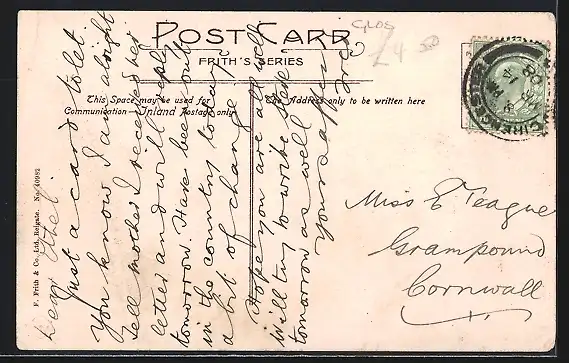 POST CARD
FRITH'S SERIES
GLOS
£4 50
This Space may be used for
Communication—Inland Postage only
The Address only to be written here
F. Frith & Co., Ltd., Reigate. No. 40982
Dear Ethel.
Just a card to let
You know I am alright
Tell mother I received her
letter and will reply
tomorrow. Have been out
in the country today
a bit of change
Hope you are all well
will try to write
tomorrow as well
Yours affec
Miss E Teague
Grampound
Cornwall
CIRENCESTER